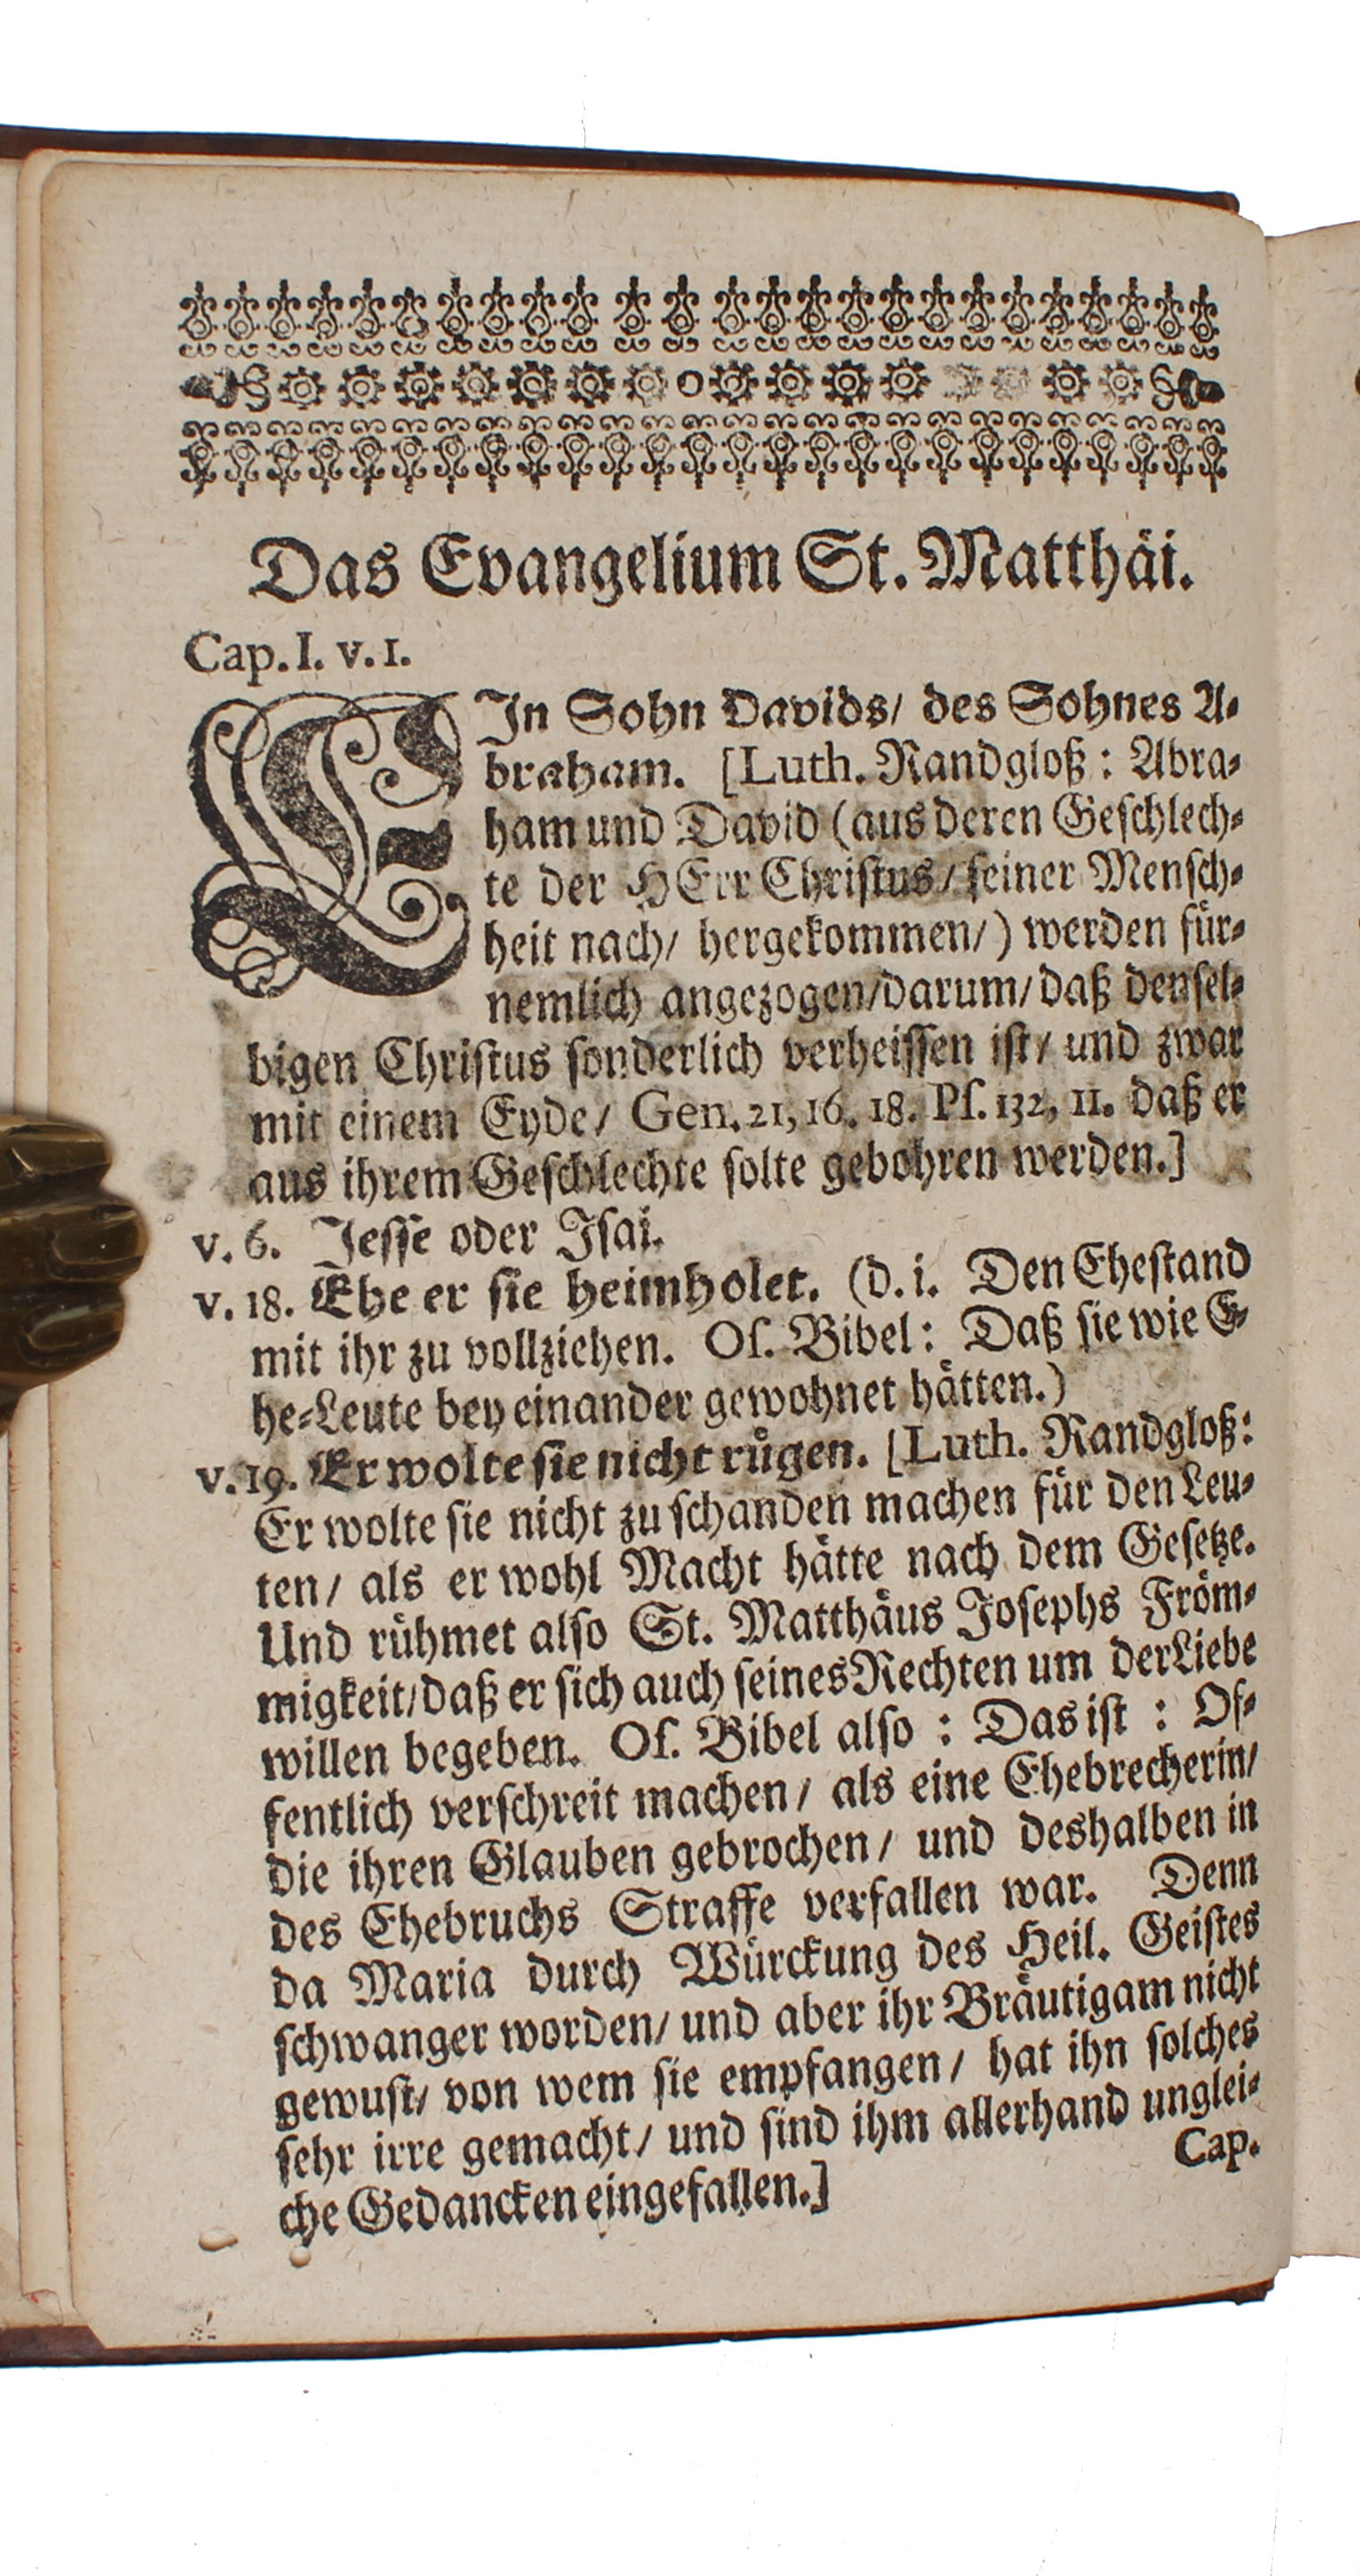 Das Evangelium St. Matthäi.
Cap. I. v. 1.
EIn Sohn Davids/ des Sohnes A-
braham. [Luth. Randgloß: Abra-
ham und David (aus deren Geschlech-
te der HErr Christus/ seiner Mensch-
heit nach/ hergekommen/) werden für-
nemlich angezogen/darum/daß densel-
bigen Christus sonderlich verheissen ist/ und zwar
mit einem Eyde/ Gen. 21, 16. 18. Ps. 132, 11. daß er
aus ihrem Geschlechte solte gebohren werden.]
v. 6. Jesse oder Isai.
v. 18. Ehe er sie heimholet. (d. i. Den Ehestand
mit ihr zu vollziehen. Os. Bibel: Daß sie wie E-
he-Leute bey einander gewohnet hätten.)
v. 19. Er wolte sie nicht rügen. [Luth. Randgloß:
Er wolte sie nicht zu schanden machen für den Leu-
ten/ als er wohl Macht hätte nach dem Gesetze.
Und rühmet also St. Matthäus Josephs Fröm-
migkeit/daß er sich auch seines Rechten um der Liebe
willen begeben. Os. Bibel also : Das ist : Of-
fentlich verschreit machen/ als eine Ehebrecherin/
die ihren Glauben gebrochen/ und deshalben in
des Ehebruchs Straffe verfallen war. Denn
da Maria durch Würckung des Heil. Geistes
schwanger worden/ und aber ihr Bräutigam nicht
gewust/ von wem sie empfangen/ hat ihn solches
sehr irre gemacht/ und sind ihm allerhand unglei-
che Gedancken eingefallen.]
Cap.